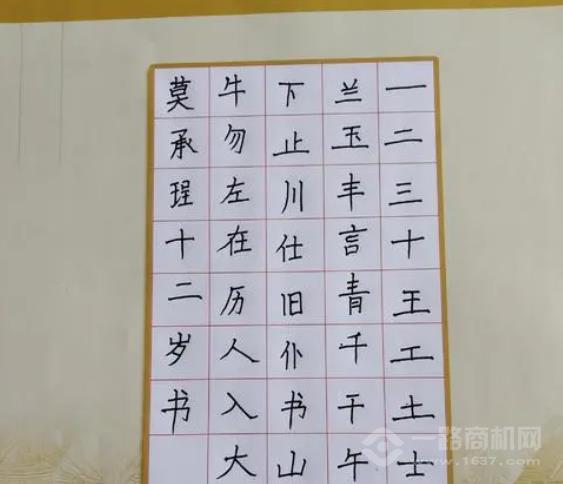 一二三十王工土士
兰玉丰言青千干午
下止川仕旧仆书山
牛勿左在历人入大
莫承珵十二岁书
一路商机网
www.1637.com